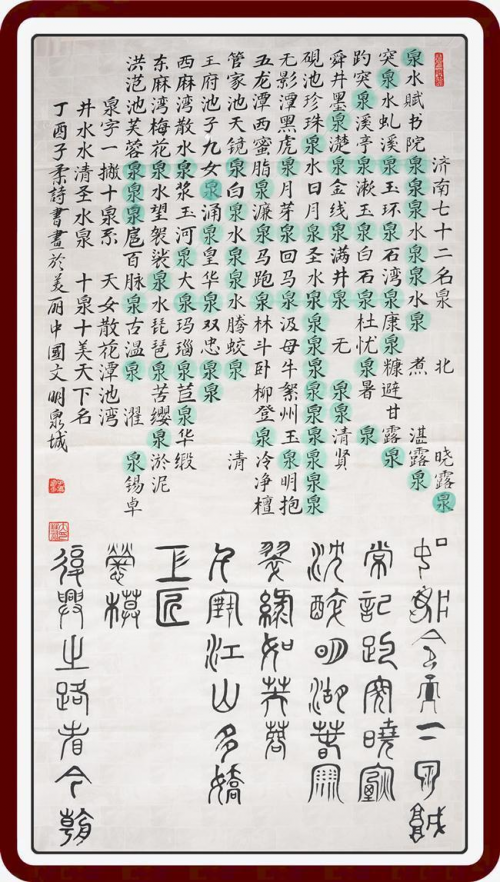 济南七十二名泉 北 晓露泉
泉水赋书院泉泉泉水泉泉泉水泉 煮 湛露泉
突泉水虬溪泉玉环泉石湾泉康泉糠避甘露泉
趵突泉溪亭泉漱玉泉白石泉杜忧泉暑 泉
舜井墨泉泉金线泉满井泉 无 泉泉清贤
砚池珍珠泉水日月泉圣水泉泉泉泉泉泉泉泉泉
无影潭黑虎泉月芽泉回马泉汲母牛絮州玉泉明抱
五龙潭西蜜脂泉濂泉马跑泉林斗卧柳登泉冷净檀
管家池天镜泉白泉水泉泉水腾蛟泉 清
王府池子九女泉涌泉皇华泉双忠泉泉
西麻湾散水泉浆玉河泉大泉玛瑙泉苣泉华缎
东麻湾梅花泉水望袈裟泉水琵琶泉苦缨泉淤泥
洪范池芙蓉泉泉泉扈百脉泉古温泉 濯 泉锡卓
泉字一撇十泉系 天女散花潭池湾
井水水清圣水泉 十泉十美天下名
丁酉子柔詩書畫於美丽中國文明泉城
常記趵突曉
沈醉明湖
翠綠如芙蓉
江山多嬌
匠
復興之路者今朝